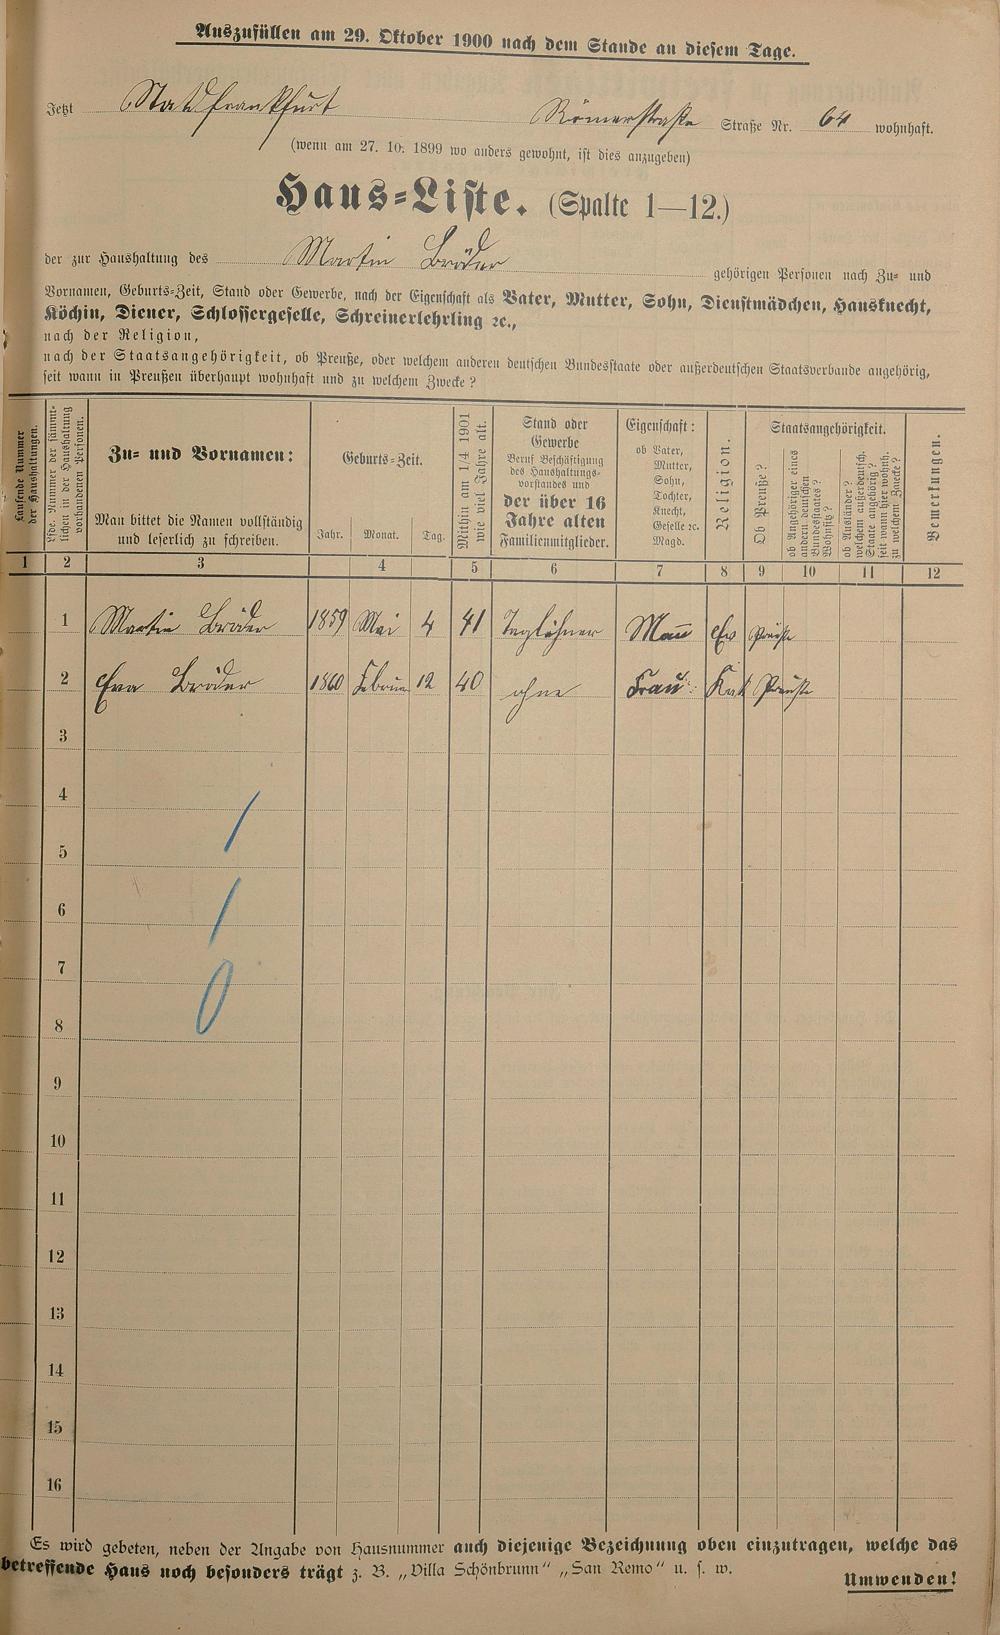 Auszufüllen am 29. Oktober 1900 nach dem Stande an diesem Tage.
Jetzt Stadtfrankfurt Römerstraße Straße Nr. 64 wohnhaft.
(wenn am 27. 10. 1899 wo anders gewohnt, ist dies anzugeben)
Haus-Liste. (Spalte 1—12.)
der zur Haushaltung des Martin Bröder gehörigen Personen nach Zu- und
Vornamen, Geburts-Zeit, Stand oder Gewerbe, nach der Eigenschaft als Vater, Mutter, Sohn, Dienstmädchen, Hausknecht,
Köchin, Diener, Schlossergeselle, Schreinerlehrling ec.,
nach der Religion,
nach der Staatsangehörigkeit, ob Preuße, oder welchem anderen deutschen Bundesstaate oder außerdeutschen Staatsverbande angehörig,
seit wann in Preußen überhaupt wohnhaft und zu welchem Zwecke?
Laufende Nummer
der Haushaltungen.
Lfde. Nummer der sämmt-
lichen in der Haushaltung
vorhandenen Personen.
Zu- und Vornamen:
Man bittet die Namen vollständig
und leserlich zu schreiben.
Geburts-Zeit.
Jahr. Monat. Tag.
Mithin am 1/4 1901
wie viel Jahre alt.
Stand oder
Gewerbe
Beruf Beschäftigung
des Haushaltungs-
vorstandes und
der über 16
Jahre alten
Familienmitglieder.
Eigenschaft:
ob Vater,
Mutter,
Sohn,
Tochter,
Knecht,
Geselle ec.
Magd.
Religion.
Staatsangehörigkeit.
Ob Preuße?
ob Angehöriger eines
andern deutschen
Bundesstaates?
Wohnsitz?
ob Ausländer?
welchem außerdeutsch.
Staate angehörig?
seit wann hier wohnh.
zu welchem Zwecke?
Bemerkungen.
1 2 3 4 5 6 7 8 9 10 11 12
1 Martin Bröder 1859 Mai 4 41 Taglöhner Mann Ev Preuße
2 Eva Bröder 1860 Februar 12 40 ohne Frau Kat Preuße
3
4
5
6
7
8
9
10
11
12
13
14
15
16
Es wird gebeten, neben der Angabe von Hausnummer auch diejenige Bezeichnung oben einzutragen, welche das
betreffende Haus noch besonders trägt z. B. „Villa Schönbrunn" „San Remo" u. s. w.
Umwenden!